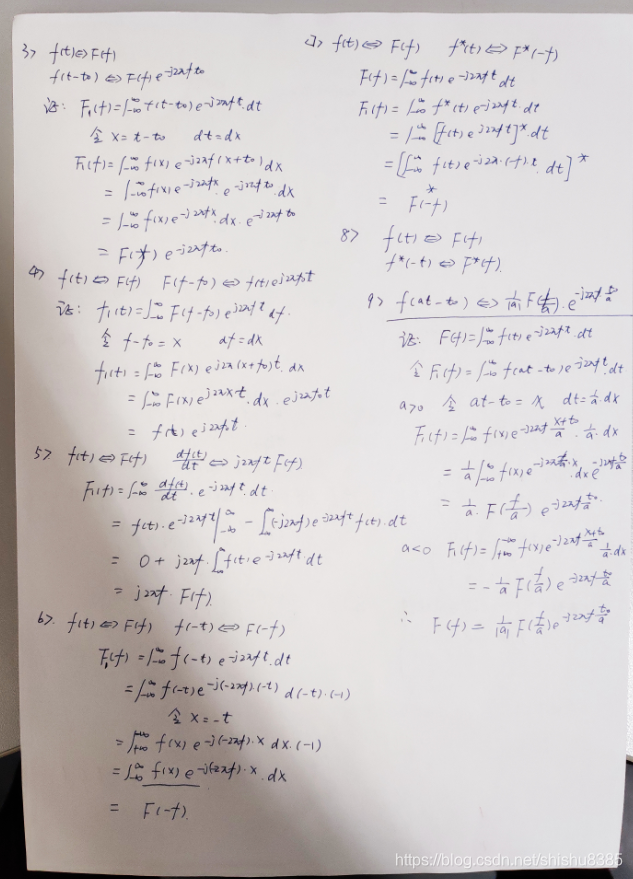 3> f(t)⇔F(f)
f(t-t₀) ⇔ F(f) e^{-j2πft₀}
证: F₁(f)=∫_{-∞}^{∞} f(t-t₀) e^{-j2πft}.dt
令 x=t-t₀ dt=dx
F₁(f)=∫_{-∞}^{∞} f(x) e^{-j2πf(x+t₀)} dx
= ∫_{-∞}^{∞} f(x) e^{-j2πfx}.e^{-j2πft₀}.dx
= ∫_{-∞}^{∞} f(x) e^{-j2πfx}.dx.e^{-j2πft₀}
= F(f) e^{-j2πft₀}.
4> f(t)⇔F(f) F(f-f₀)⇔f(t)e^{j2πf₀t}
证: f₁(t)=∫_{-∞}^{∞} F(f-f₀) e^{j2πft} df
令 f-f₀=x df=dx
f₁(t)=∫_{-∞}^{∞} F(x) e^{j2π(x+f₀)t}.dx
= ∫_{-∞}^{∞} F(x) e^{j2πx.t}.dx.e^{j2πf₀t}
= f(t) e^{j2πf₀t}
5> f(t)⇔F(f) df(t)/dt ⇔ j2πf F(f)
F₁(f)=∫_{-∞}^{∞} df(t)/dt.e^{-j2πft}.dt.
= f(t).e^{-j2πft}|_{-∞}^{∞} - ∫_{-∞}^{∞}(-j2πf)e^{-j2πft} f(t).dt
= 0 + j2πf.∫_{-∞}^{∞} f(t)e^{-j2πft}dt
= j2πf.F(f).
6>. f(t)⇔F(f) f(-t)⇔F(-f)
F₁(f)=∫_{-∞}^{∞} f(-t) e^{-j2πft}.dt
=∫_{-∞}^{∞} f(-t) e^{-j(-2πf).(-t)} d(-t).(-1)
令 x=-t
=∫_{+∞}^{-∞} f(x) e^{-j(-2πf).x} dx.(-1)
=∫_{-∞}^{∞} f(x) e^{-j(-2πf).x}.dx
= F(-f).
7> f(t)⇔F(f) f*(t)⇔F*(-f)
F(f)=∫_{-∞}^{∞} f(t) e^{-j2πft}dt
F₁(f)=∫_{-∞}^{∞} f*(t) e^{-j2πft}.dt
=∫_{-∞}^{∞}[f(t) e^{j2πft}]*.dt
=[∫_{-∞}^{∞} f(t) e^{-j2π.(-f).t}.dt]*
= F*(-f)
8> f(t)⇔F(f)
f*(-t)⇔F*(f).
9> f(at-t₀)⇔1/|a| F(f/a).e^{-j2πf t₀/a}
证: F(f)=∫_{-∞}^{∞} f(t) e^{-j2πft}.dt
令 F₁(f)=∫_{-∞}^{∞} f(at-t₀) e^{-j2πft}.dt
a>0 令 at-t₀=x dt=1/a.dx
F₁(f)=∫_{-∞}^{∞} f(x) e^{-j2πf (x+t₀)/a}.1/a.dx
= 1/a ∫_{-∞}^{∞} f(x) e^{-j2π f/a.x}.dx e^{-j2πf t₀/a}
= 1/a.F(f/a) e^{-j2πf t₀/a}.
a<0 F₁(f)=∫_{+∞}^{-∞} f(x) e^{-j2πf (x+t₀)/a} 1/a.dx
= -1/a F(f/a) e^{-j2πf t₀/a}
∴ F(f)= 1/|a| F(f/a) e^{-j2πf t₀/a}
https://blog.csdn.net/shishu8385